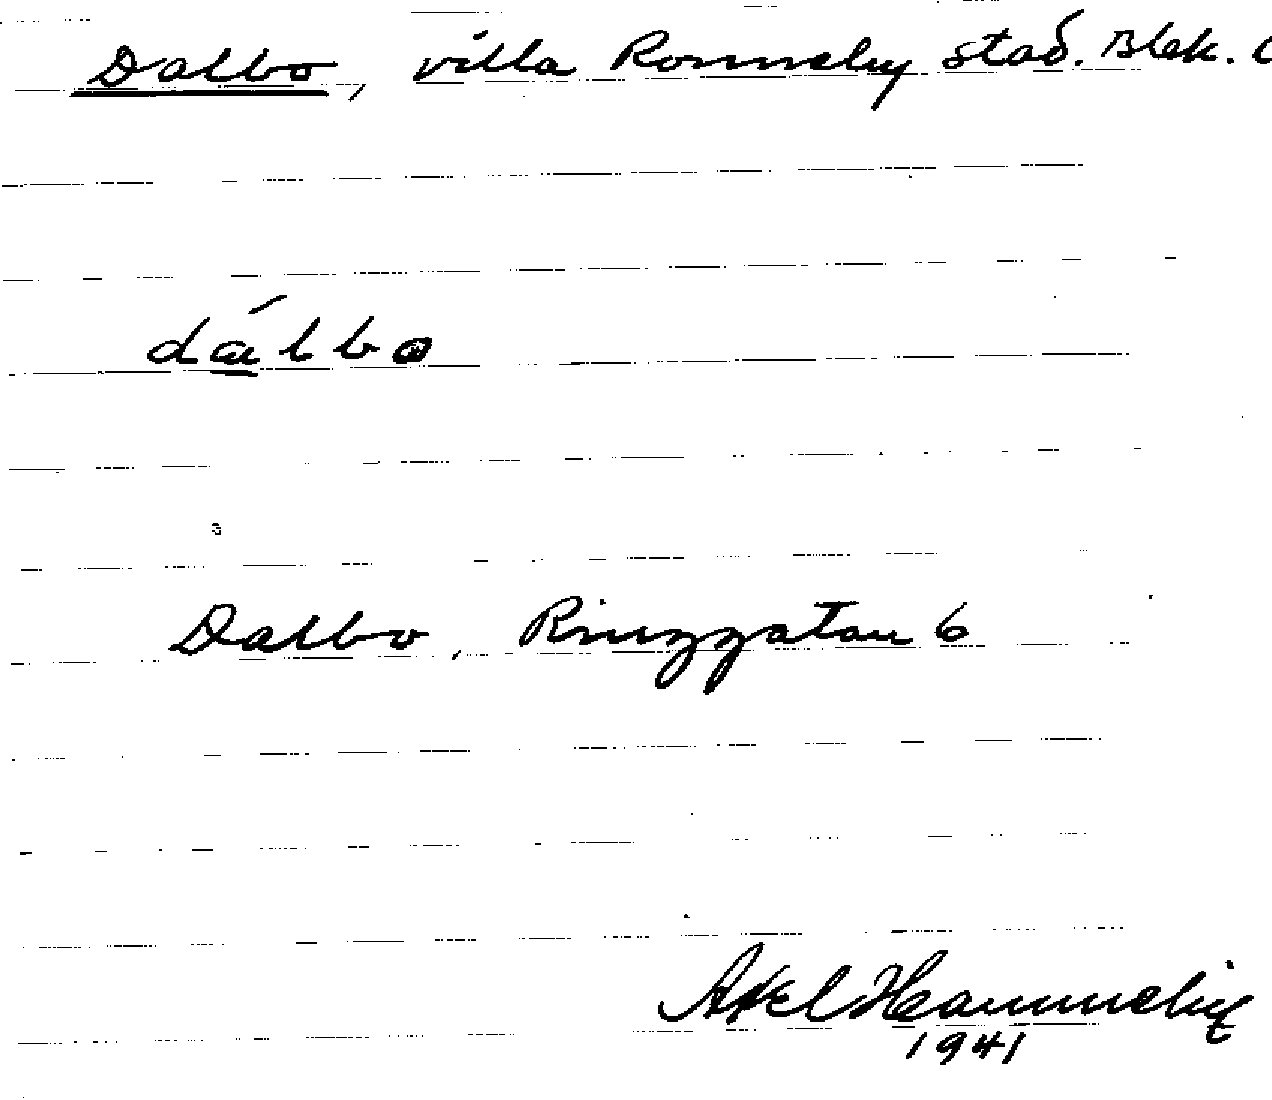 Dalbo, villa Ronneby stad. Blek. l
dálbo
Dalbo, Ringgatan 6
Axel
1941